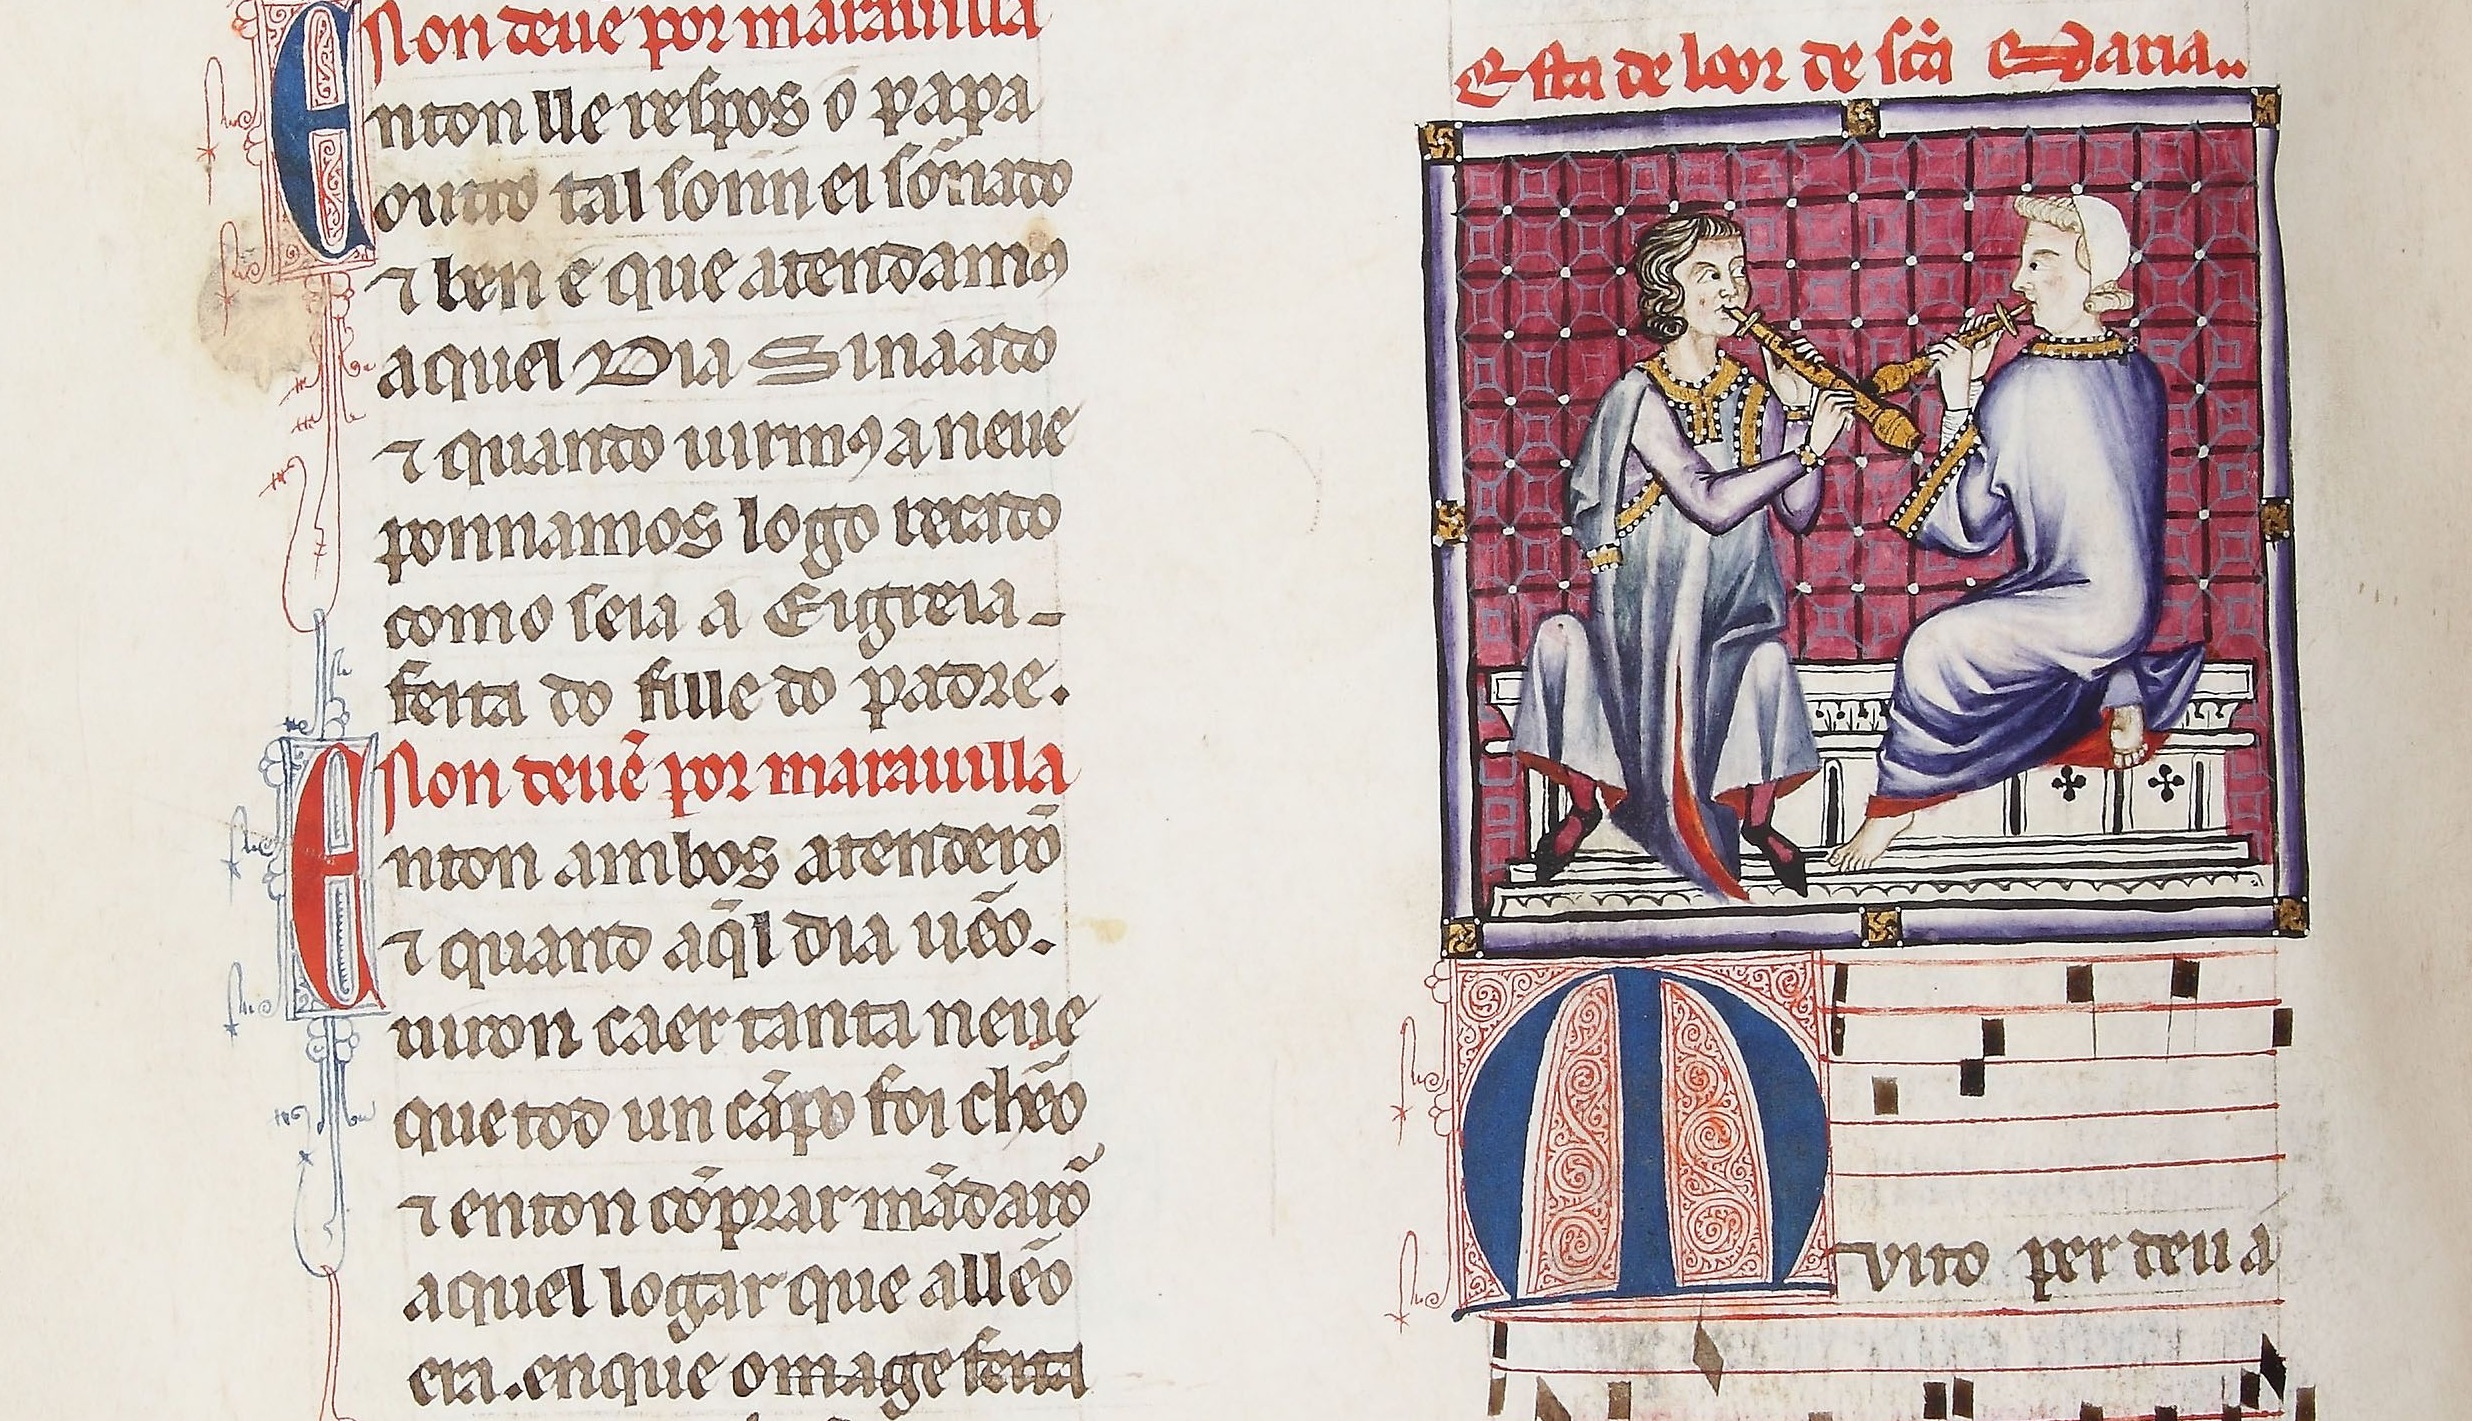 Non deue por marauilla
Enton lle respos o papa
outro tal sonn ei sonnado
⁊ ben e que atendamos
aquel Dia Sinaado
⁊ quando uirmos a neue
ponnamos logo recado
como seia a Eigreia
feita do fille do padre.
Non deuẽ por marauilla
Enton ambos atenderõ
⁊ quando aq̃l dia uẽo.
uiron caer tanta neue
que tod un cãpo foi chẽo
⁊ enton cõprar mãdarõ
aquel logar que allẽo
era. enque omage feita
Esta de loor de scã Maria..
Muito per deu a